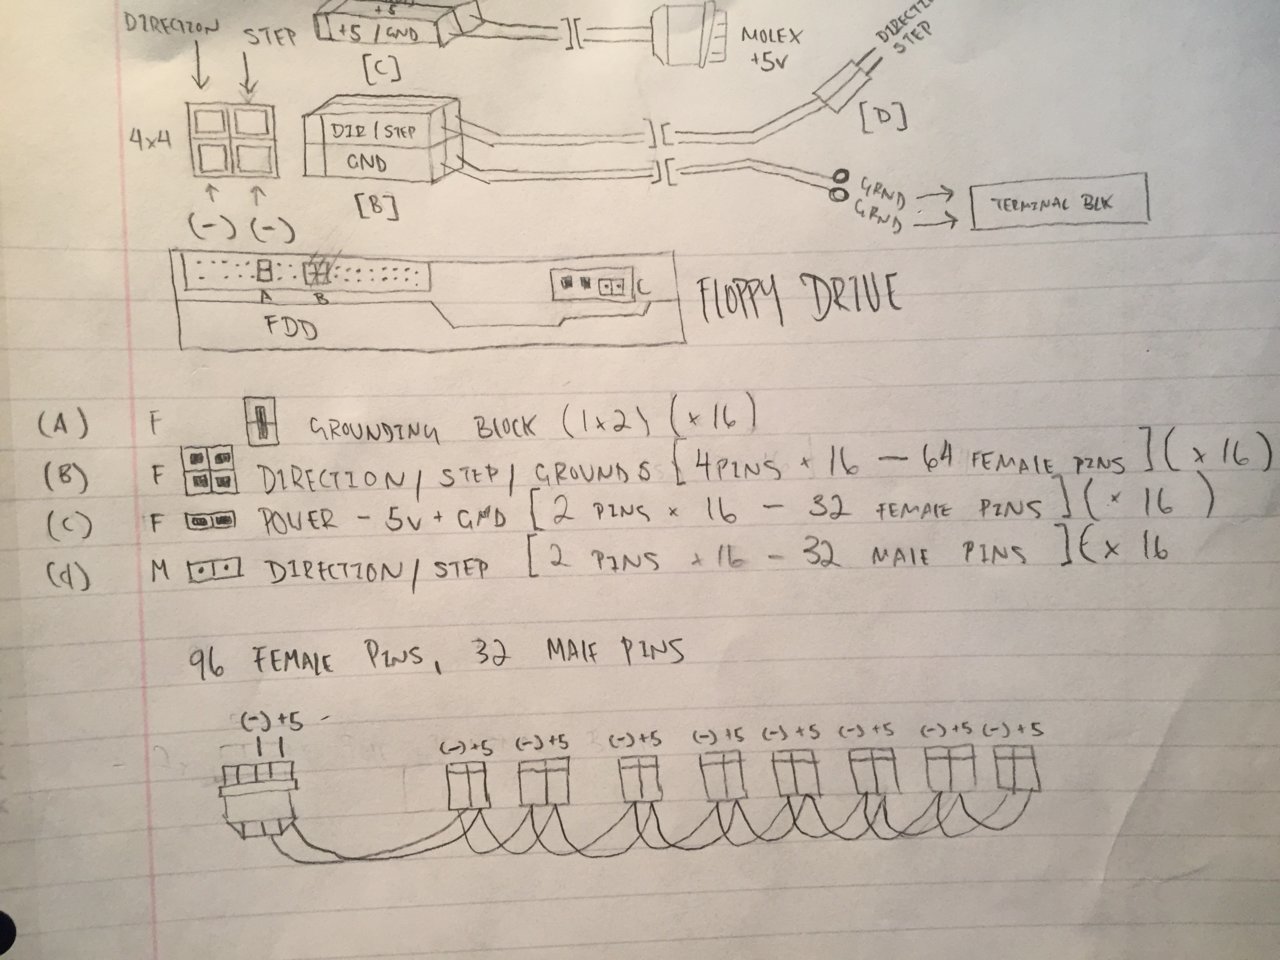 +5
DIRECTION STEP
+5 / GND
[C]
MOLEX
+5V
DIRECTION
STEP
[D]
4x4
DIR / STEP
GND
[B]
(-) (-)
GRND
GRND
TERMINAL BLK
A B C
FDD
FLOPPY DRIVE
(A) F GROUNDING BLOCK (1x2) (x 16)
(B) F DIRECTION / STEP / GROUNDS [4 PINS x 16 - 64 FEMALE PINS] (x 16)
(C) F POWER - 5V + GND [2 PINS x 16 - 32 FEMALE PINS] (x 16)
(d) M DIRECTION / STEP [2 PINS x 16 - 32 MALE PINS] (x 16
96 FEMALE PINS, 32 MALE PINS
(-) +5 -
(-) +5 (-) +5 (-) +5 (-) +5 (-) +5 (-) +5 (-) +5 (-) +5